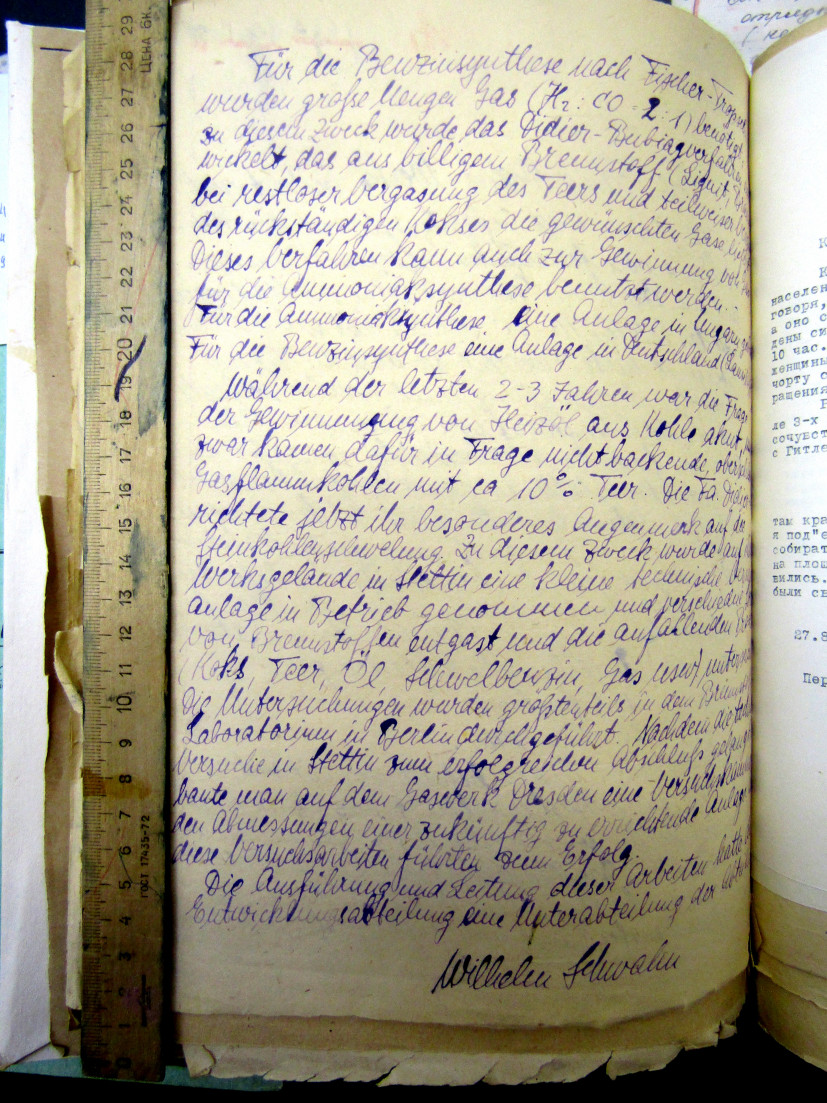 Für die Benzinsynthese nach Fischer-Tropsch
wurden große Mengen Gas (H₂:CO = 2:1) benötigt
zu diesem Zweck wurde das Didier-Bubiagverfahren
wickelt, das aus billigem Brennstoff (Lignit,
bei restloser Vergasung des Teers und teilweiser
des rückständigen Kokses die gewünschten Gase
Dieses Verfahren kann auch zur Gewinnung von
für die Ammoniaksynthese benutzt werden.
Für die Ammoniaksynthese eine Anlage in Ungarn
Für die Benzinsynthese eine Anlage in Deutschland
Während der letzten 2-3 Jahren war die Frage
der Gewinnung von Heizöl aus Kohle akut,
zwar kamen dafür in Frage nicht backende,
Gasflammkohlen mit ca 10% Teer. Die Fa. Didier
richtete jetzt ihr besonderes Augenmerk auf die
Steinkohlenschwelung. Zu diesem Zweck wurde auf
Werksgelände in Stettin eine kleine technische
anlage in Betrieb genommen und verschiedene
von Brennstoffen entgast und die anfallenden
(Koks, Teer, Öl, Schwelbenzin, Gas usw)
Die Untersuchungen wurden größtenteils in dem
Laboratorium in Berlin durchgeführt. Nachdem die
Versuche in Stettin zum erfolgreichen Abschluß
baute man auf dem Gaswerk Dresden eine
den Abmessungen einer zukünftig zu errichtende Anlage
diese Versuchsarbeiten führten zum Erfolg.
Die Ausführung und Leitung dieser Arbeiten hatte
Entwicklungsabteilung eine Unterabteilung der
Wilhelm Schwahn
ЦЕНА 6к.
ГОСТ 17435-72
29
28
27
26
25
24
23
22
21
20
19
18
17
16
15
14
13
12
11
10
9
8
7
6
5
4
3
2
1
0
К
К
населен
говоря,
а оно с
дены си
10 час.
женщины
чорту с
ращения
ле 3-х
сочувст
с Гитле
там кра
я под"е
собират
на площ
вились.
были св
27.8
Пер